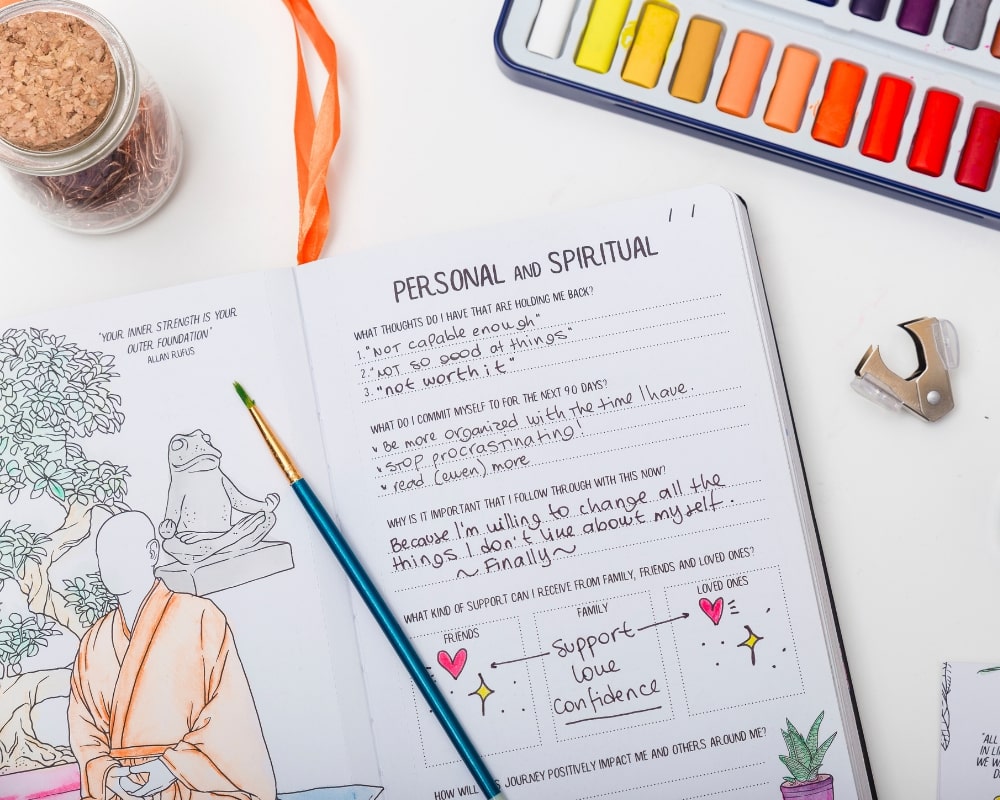 "YOUR INNER STRENGTH IS YOUR
OUTER FOUNDATION"
ALLAN RUFUS
PERSONAL AND SPIRITUAL
WHAT THOUGHTS DO I HAVE THAT ARE HOLDING ME BACK?
1. "NOT capable enough"
2. "NOT so good at things"
3. "not worth it"
WHAT DO I COMMIT MYSELF TO FOR THE NEXT 90 DAYS?
Be more organized with the time I have.
STOP procrastinating!
read (even) more
WHY IS IT IMPORTANT THAT I FOLLOW THROUGH WITH THIS NOW?
Because I'm willing to change all the
things I don't like about myself.
~ Finally ~
WHAT KIND OF SUPPORT CAN I RECEIVE FROM FAMILY, FRIENDS AND LOVED ONES?
FRIENDS
FAMILY
LOVED ONES
Support
Love
Confidence
HOW WILL JOURNEY POSITIVELY IMPACT ME AND OTHERS AROUND ME?
"ALL
IN LI
WE W